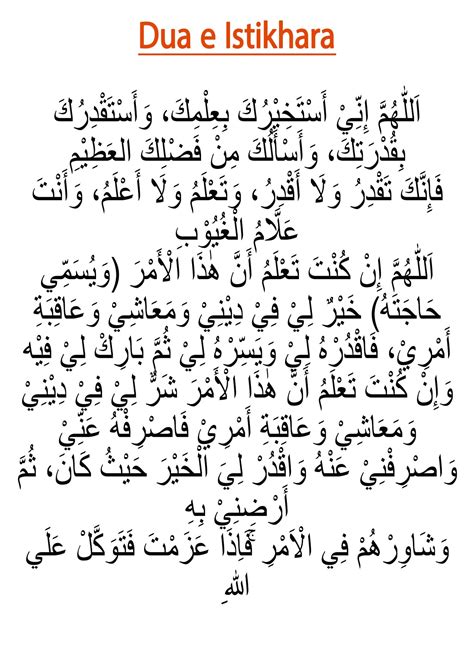 Dua e Istikhara
اَللّٰهُمَّ إِنِّيْ أَسْتَخِيْرُكَ بِعِلْمِكَ، وَأَسْتَقْدِرُكَ
بِقُدْرَتِكَ، وَأَسْأَلُكَ مِنْ فَضْلِكَ العَظِيْمِ
فَإِنَّكَ تَقْدِرُ وَلَا أَقْدِرُ، وَتَعْلَمُ وَلَا أَعْلَمُ، وَأَنْتَ
عَلَّامُ الْغُيُوْبِ
اَللّٰهُمَّ إِنْ كُنْتَ تَعْلَمُ أَنَّ هٰذَا الْأَمْرَ (وَيُسَمِّي
حَاجَتَهُ) خَيْرٌ لِيْ فِيْ دِيْنِيْ وَمَعَاشِيْ وَعَاقِبَةِ
أَمْرِيْ، فَاقْدُرْهُ لِيْ وَيَسِّرْهُ لِيْ ثُمَّ بَارِكْ لِيْ فِيْه
وَإِنْ كُنْتَ تَعْلَمُ أَنَّ هٰذَا الْأَمْرَ شَرٌّ لِيْ فِيْ دِيْنِيْ
وَمَعَاشِيْ وَعَاقِبَةِ أَمْرِيْ فَاصْرِفْهُ عَنِّيْ
وَاصْرِفْنِيْ عَنْهُ وَاقْدُرْ لِيَ الْخَيْرَ حَيْثُ كَانَ، ثُمَّ
أَرْضِنِيْ بِهِ
وَشَاوِرْهُمْ فِي الْاَمْرِ ۚ فَاِذَا عَزَمْتَ فَتَوَكَّلْ عَلَي
اللهِ